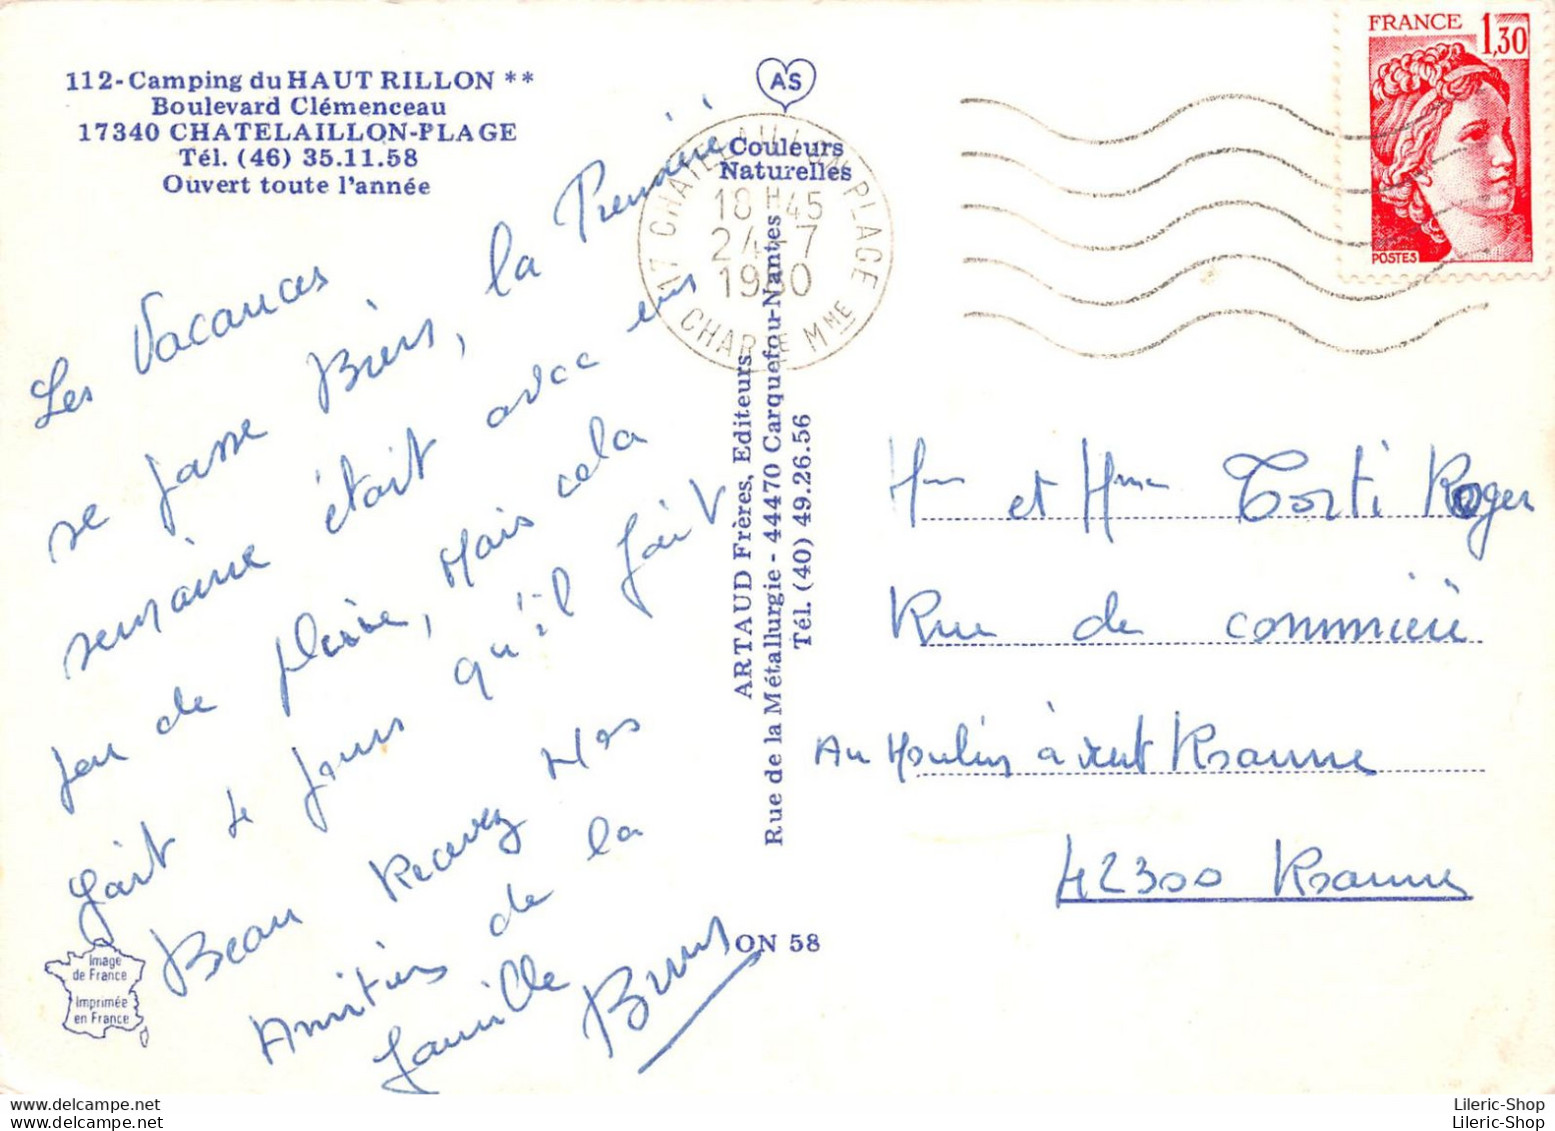 112-Camping du HAUT RILLON **
Boulevard Clémenceau
17340 CHATELAILLON-PLAGE
Tél. (46) 35.11.58
Ouvert toute l'année
Les Vacances
se passe Biens, la Première
semaine était avec un
peu de pluie, Mais cela
fait 4 jours qu'il fait
Beau Recevez Nos
Amitiés de la
famille Bruns
Image
de France
Imprimée
en France
AS
Couleurs
Naturelles
17 CHATELAILLON PLAGE
18 H 45
24-7
1980
CHARTE MME
ARTAUD Frères, Editeurs
Rue de la Métallurgie - 44470 Carquefou-Nantes
Tél. (40) 49.26.56
ON 58
FRANCE 1,30
POSTES
Mr et Mme Torti Roger
Rue de
Au Moulin à vent Roanne
42300 Roanne
Lileric-Shop
Lileric-Shop
Lileric-Shop
Lileric-Shop